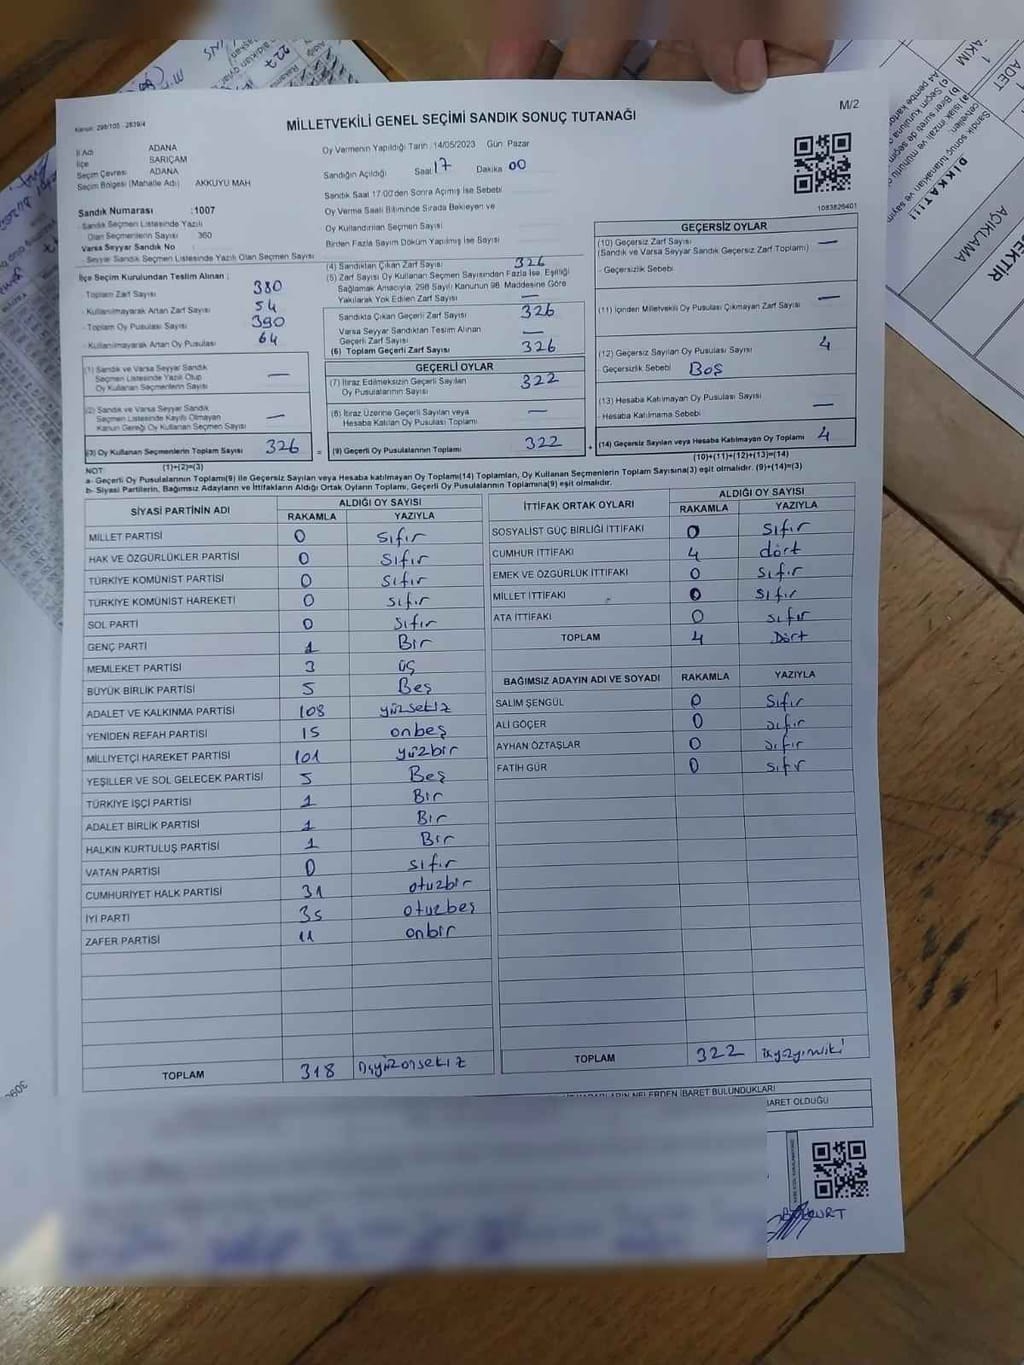 MİLLETVEKİLİ GENEL SEÇİMİ SANDIK SONUÇ TUTANAĞI
M/2
Kanun: 298/105 - 2839/4
İl Adı ADANA
İlçe SARIÇAM
Seçim Çevresi ADANA
Seçim Bölgesi (Mahalle Adı) AKKUYU MAH
Sandık Numarası :1007
- Sandık Seçmen Listesinde Yazılı
Olan Seçmenlerin Sayısı 360
Varsa Seyyar Sandık No
- Seyyar Sandık Seçmen Listesinde Yazılı Olan Seçmen Sayısı
Oy Vermenin Yapıldığı Tarih :14/05/2023 Gün Pazar
Sandığın Açıldığı Saat 17 Dakika 00
Sandık Saat 17:00'den Sonra Açılmış İse Sebebi
Oy Verme Saati Bitiminde Sırada Bekleyen ve
Oy Kullandırılan Seçmen Sayısı
Birden Fazla Sayım Döküm Yapılmış İse Sayısı
1083826401
İlçe Seçim Kurulundan Teslim Alınan :
- Toplam Zarf Sayısı 380
- Kullanılmayarak Artan Zarf Sayısı 54
- Toplam Oy Pusulası Sayısı 390
- Kullanılmayarak Artan Oy Pusulası 64
(1) Sandık ve Varsa Seyyar Sandık
Seçmen Listesinde Yazılı Olup
Oy Kullanan Seçmenlerin Sayısı —
(2) Sandık ve Varsa Seyyar Sandık
Seçmen Listesinde Kayıtlı Olmayan
Kanun Gereği Oy Kullanan Seçmen Sayısı —
(3) Oy Kullanan Seçmenlerin Toplam Sayısı 326
(1)+(2)=(3)
(4) Sandıktan Çıkan Zarf Sayısı 326
(5) Zarf Sayısı Oy Kullanan Seçmen Sayısından Fazla İse, Eşitliği
Sağlamak Amacıyla, 298 Sayılı Kanunun 98. Maddesine Göre
Yakılarak Yok Edilen Zarf Sayısı —
Sandıkta Çıkan Geçerli Zarf Sayısı 326
Varsa Seyyar Sandıktan Teslim Alınan
Geçerli Zarf Sayısı —
(6) Toplam Geçerli Zarf Sayısı 326
GEÇERLİ OYLAR
(7) İtiraz Edilmeksizin Geçerli Sayılan
Oy Pusulalarının Sayısı 322
(8) İtiraz Üzerine Geçerli Sayılan veya
Hesaba Katılan Oy Pusulası Toplamı —
= (9) Geçerli Oy Pusulalarının Toplamı 322
GEÇERSİZ OYLAR
(10) Geçersiz Zarf Sayısı —
(Sandık ve Varsa Seyyar Sandık Geçersiz Zarf Toplamı)
- Geçersizlik Sebebi
(11) İçinden Milletvekili Oy Pusulası Çıkmayan Zarf Sayısı —
(12) Geçersiz Sayılan Oy Pusulası Sayısı 4
Geçersizlik Sebebi Boş
(13) Hesaba Katılmayan Oy Pusulası Sayısı —
- Hesaba Katılmama Sebebi
+ (14) Geçersiz Sayılan veya Hesaba Katılmayan Oy Toplamı 4
(10)+(11)+(12)+(13)=(14)
NOT:
a- Geçerli Oy Pusulalarının Toplamı(9) ile Geçersiz Sayılan veya Hesaba Katılmayan Oy Toplamı(14) Toplamları, Oy Kullanan Seçmenlerin Toplam Sayısına(3) eşit olmalıdır. (9)+(14)=(3)
b- Siyasi Partilerin, Bağımsız Adayların ve İttifakların Aldığı Ortak Oyların Toplamı, Geçerli Oy Pusulalarının Toplamına(9) eşit olmalıdır.
SİYASİ PARTİNİN ADI ALDIĞI OY SAYISI
RAKAMLA YAZIYLA
MİLLET PARTİSİ 0 sıfır
HAK VE ÖZGÜRLÜKLER PARTİSİ 0 sıfır
TÜRKİYE KOMÜNİST PARTİSİ 0 sıfır
TÜRKİYE KOMÜNİST HAREKETİ 0 sıfır
SOL PARTİ 0 sıfır
GENÇ PARTİ 1 Bir
MEMLEKET PARTİSİ 3 üç
BÜYÜK BİRLİK PARTİSİ 5 Beş
ADALET VE KALKINMA PARTİSİ 108 yüzsekiz
YENİDEN REFAH PARTİSİ 15 onbeş
MİLLİYETÇİ HAREKET PARTİSİ 101 yüzbir
YEŞİLLER VE SOL GELECEK PARTİSİ 5 Beş
TÜRKİYE İŞÇİ PARTİSİ 1 Bir
ADALET BİRLİK PARTİSİ 1 Bir
HALKIN KURTULUŞ PARTİSİ 1 Bir
VATAN PARTİSİ 0 sıfır
CUMHURİYET HALK PARTİSİ 31 otuzbir
İYİ PARTİ 35 otuzbeş
ZAFER PARTİSİ 11 onbir
TOPLAM 318 üçyüzonsekiz
İTTİFAK ORTAK OYLARI ALDIĞI OY SAYISI
RAKAMLA YAZIYLA
SOSYALİST GÜÇ BİRLİĞİ İTTİFAKI 0 sıfır
CUMHUR İTTİFAKI 4 dört
EMEK VE ÖZGÜRLÜK İTTİFAKI 0 sıfır
MİLLET İTTİFAKI 0 sıfır
ATA İTTİFAKI 0 sıfır
TOPLAM 4 Dört
BAĞIMSIZ ADAYIN ADI VE SOYADI RAKAMLA YAZIYLA
SALİM ŞENGÜL 0 Sıfır
ALİ GÖÇER 0 sıfır
AYHAN ÖZTAŞLAR 0 sıfır
FATİH GÜR 0 sıfır
TOPLAM 322
İBARET BULUNDUKLARI
BARET OLDUĞU
DİKKAT!!!
AÇIKLAMA
ADET